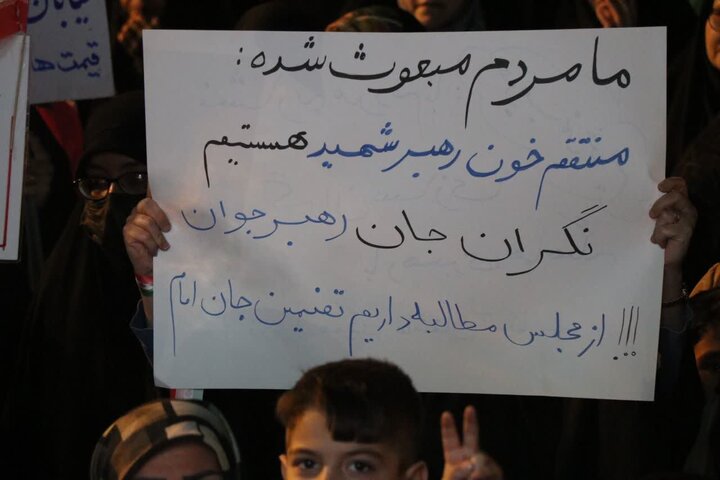 ما مردم مبعوث شده:
منتقم خون رهبر شهید هستیم
نگران جان رهبر جوان
!!! از مجلس مطالبه داریم تضمین جان امام
خیابان
قیمت ها